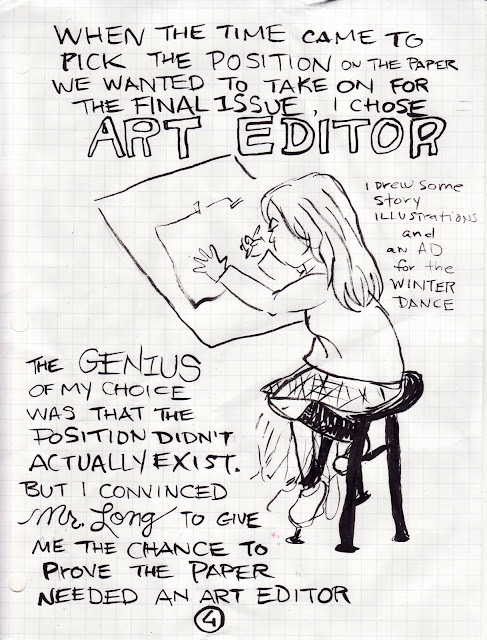 WHEN THE TIME CAME TO
PICK THE POSITION ON THE PAPER
WE WANTED TO TAKE ON FOR
THE FINAL ISSUE, I CHOSE
ART EDITOR
I DREW SOME
STORY
ILLUSTRATIONS
and
an AD
for the
WINTER
DANCE
THE GENIUS
OF MY CHOICE
WAS THAT THE
POSITION DIDN'T
ACTUALLY EXIST.
BUT I CONVINCED
Mr. Long TO GIVE
ME THE CHANCE TO
PROVE THE PAPER
NEEDED AN ART EDITOR
4